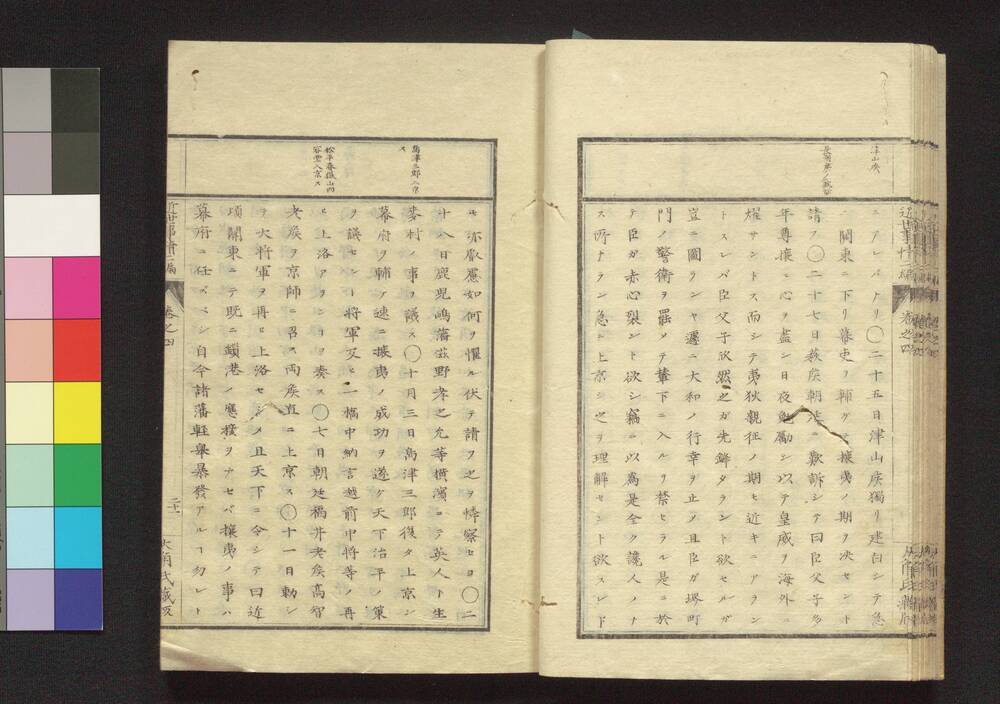 津山侯
長朝廷ノ歎訴
ニアレバナリ〇二十五日津山侯獨リ建白シテ急
ニ關東ニ下リ幕吏ヲ輔ケテ攘夷ノ期ヲ決セント
請フ〇二十七日萩侯朝廷ニ歎訴シテ曰臣父子多
年尊攘ニ心ヲ盡シ日夜勉勵シ以テ皇威ヲ海外ニ
燿サントス而シテ夷狄親征ノ期モ近キニアラン
トスレバ臣父子欣然之ガ先鋒タランヿ欲セルガ
豈ニ圖ランヤ遽ニ大和ノ行幸ヲ止メ且臣ガ堺町
門ノ警衛ヲ罷メテ輦下ニ入ルヲ禁ゼラル是ニ於
テ臣ガ赤心裂ント欲シ竊ニ以爲是全ク讒人ノナ
ス所ナラン急ニ上京シ之ヲ理解セント欲スレド
近世事情二編
卷之四
島津三郎入京
ス
松平春嶽山内
容堂入京ス
モ亦叡慮如何ヲ懼ル伏テ請フ之ヲ憐察セヨ〇二
十八日鹿兒嶋藩滋野孝之允等横濱ニテ英人ト生
麥村ノ事ヲ議ス〇十月三日島津三郎復タ上京シ
幕府ヲ輔ケ速ニ攘夷ノ成功ヲ遂ゲ天下治平ノ策
ヲ議セント將軍及ビ一橋中納言越前中將等ノ再
ビ上洛アランヿヲ奏ス〇七日朝廷福井老侯高智
老侯ヲ京師ニ召ス両侯直ニ上京ス〇十一日勅シ
テ大將軍ヲ再ビ上洛セシメ且天下ニ令シテ曰近
項關東ニテ既ニ鎖港ノ應接ヲナセバ攘夷ノ事ハ
幕府ニ任ベシ自今諸藩輕擧暴發アルヿ勿レト
近世事情二編
卷之四
二十一
大角氏藏版